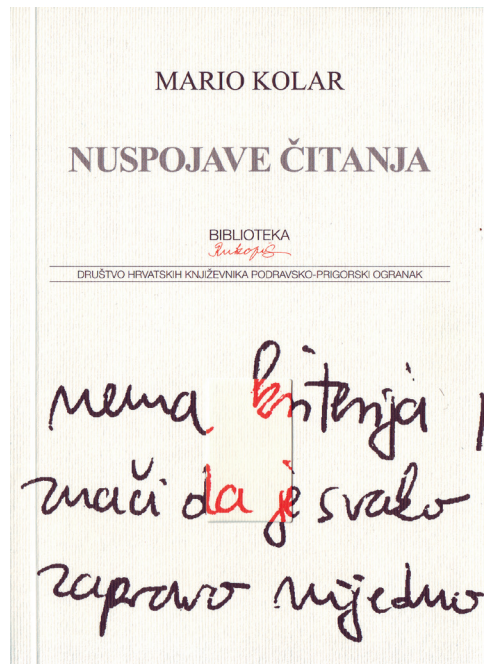 MARIO KOLAR
NUSPOJAVE ČITANJA
BIBLIOTEKA
Rukopis
DRUŠTVO HRVATSKIH KNJIŽEVNIKA PODRAVSKO-PRIGORSKI OGRANAK
nema kriterija
znači da je svako
zapravo nijedno